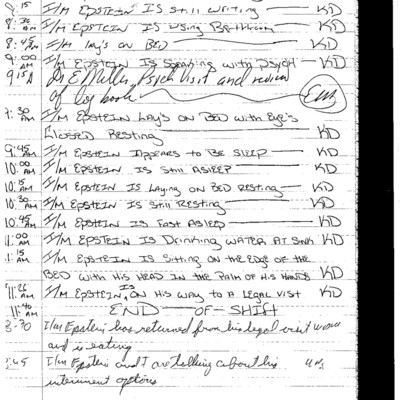 8:15 I/M EPSTEIN IS STILL WRITING KD
8:30 AM I/M EPSTEIN IS USING BATHROOM KD
8:45 AM I/M LAY'S ON BED KD
9:00 AM I/M EPSTEIN IS SPEAKING WITH PSYCH KD
9:15 A Dr E Miller, Psych visit and review
of log book
:30 AM I/M EPSTEIN LAY'S ON BED WITH EYE'S
CLOSED RESTING KD
9:45 AM I/M EPSTEIN APPEARS TO BE SLEEP KD
10:00 AM I/M EPSTEIN IS STILL ASLEEP KD
10:15 AM I/M EPSTEIN IS LAYING ON BED RESTING KD
10:30 AM I/M EPSTEIN IS STILL RESTING KD
10:45 AM I/M EPSTEIN IS FAST ASLEEP KD
11:00 AM I/M EPSTEIN IS DRINKING WATER AT SINK KD
:15 AM I/M EPSTEIN IS SITTING ON THE EDGE OF THE
BED WITH HIS HEAD IN THE PALM OF HIS HANDS KD
11:26 AM I/M EPSTEIN IS ON HIS WAY TO A LEGAL VISIT KD
11:40 AM END OF SHIFT
I/m Epstein has returned from his legal visit
and is eating
:45 I/m Epstein and I are talking about his
interment options